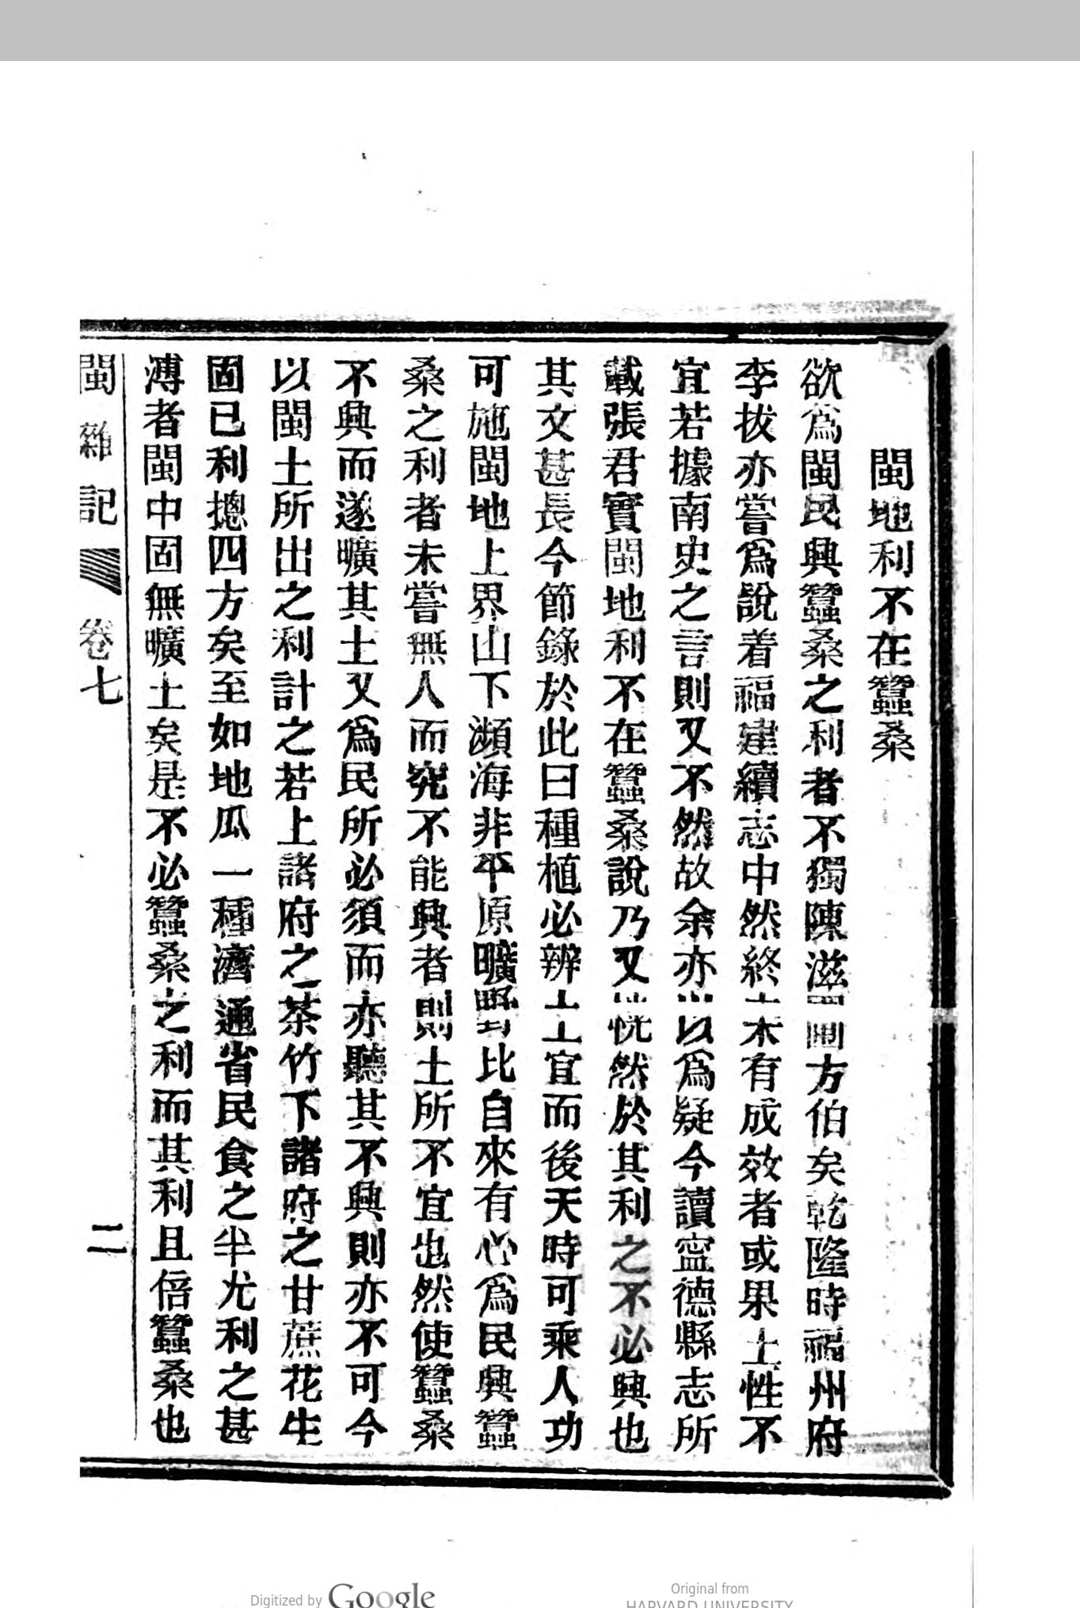 閩地利不在蠶桑
欲爲閩民興蠶桑之利者不獨陳滋圃方伯矣乾隆時福州府
李拔亦嘗爲說着福建續志中然終未有成效者或果土性不
宜若據南史之言則又不然故余亦以爲疑今讀寍德縣志所
載張君寶閩地利不在蠶桑說乃又恍然於其利之不必興也
其文甚長今節錄於此曰種植必辨土宜而後天時可乘人功
可施閩地上界山下瀕海非平原曠野比自來有心爲民興蠶
桑之利者未嘗無人而究不能興者則土所不宜也然使蠶桑
不興而遂曠其土又爲民所必須而亦聽其不興則亦不可今
以閩土所出之利計之若上諸府之茶竹下諸府之甘蔗花生
固已利摠四方矣至如地瓜一種濟通省民食之半尤利之甚
溥者閩中固無曠土矣是不必蠶桑之利而其利且倍蠶桑也
閩雜記
卷七
二
Digitized by Google
Original from
HARVARD UNIVERSITY